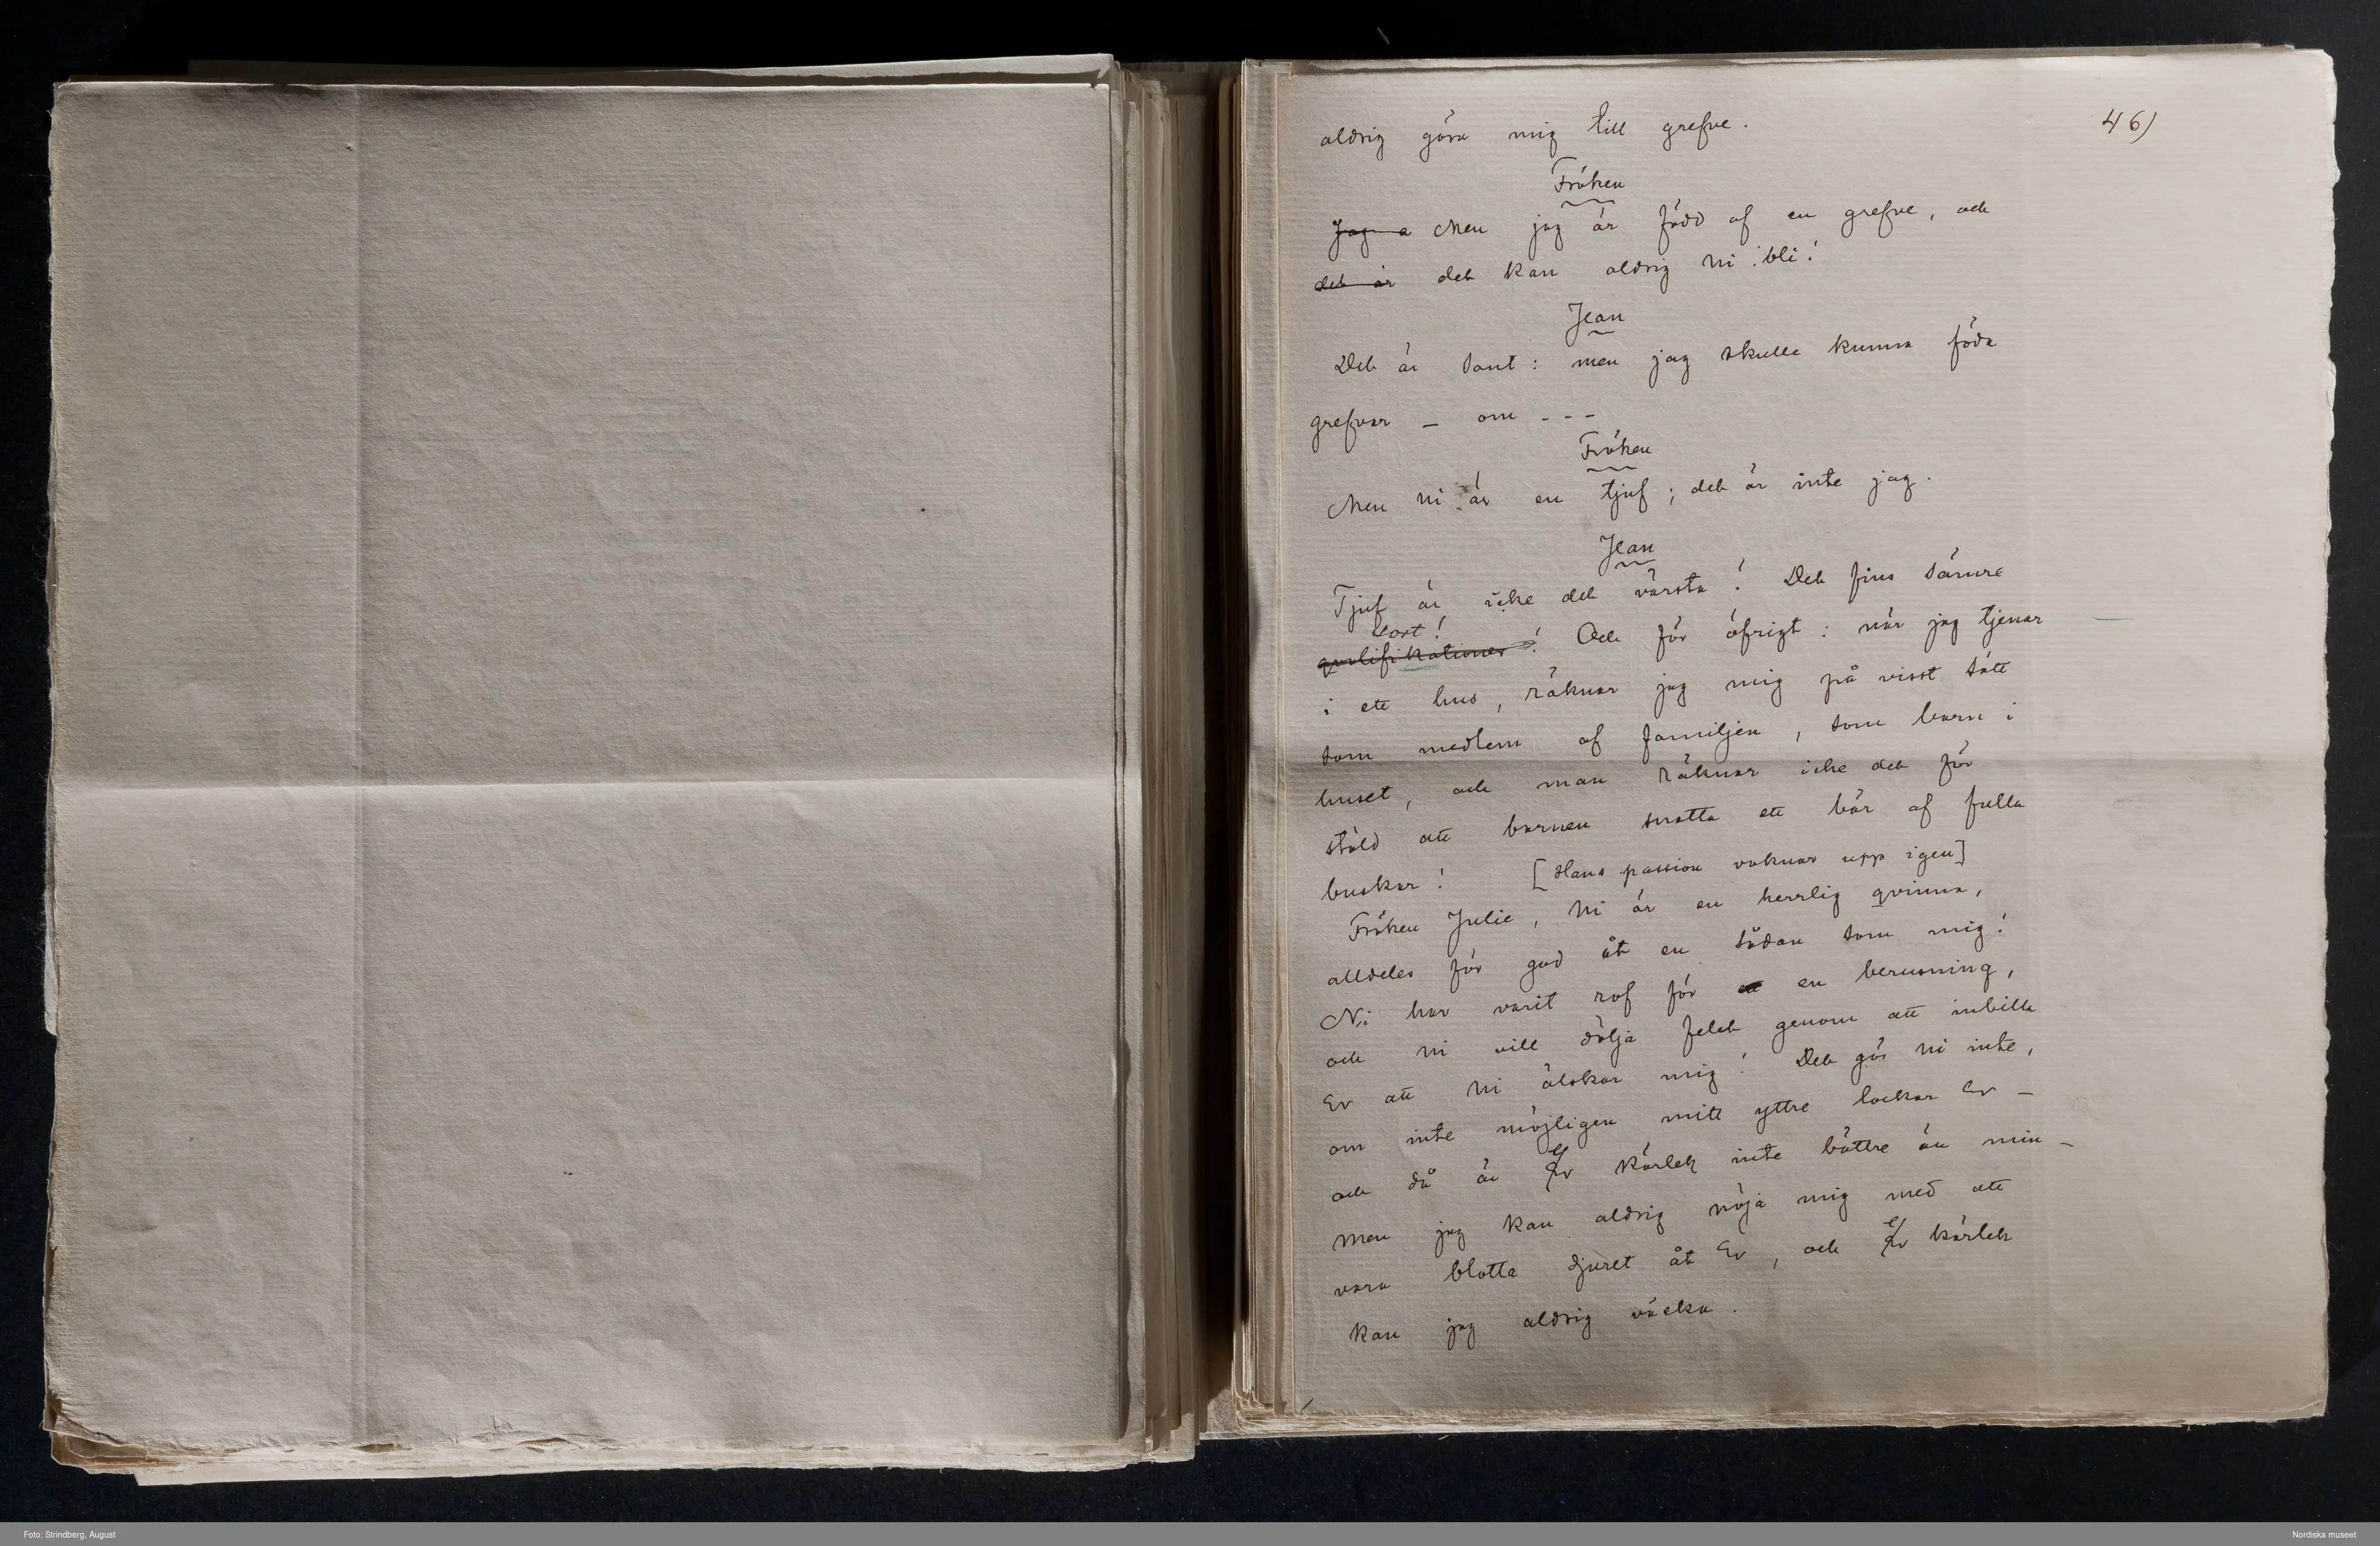 46)
aldrig göra mig till grefve.
Fröken
Jag ä Men jag är född af en grefve, och
det är det kan aldrig ni bli!
Jean
Det är sant: men jag skulle kunna föda
grefvar – om - - -
Fröken
Men ni är en tjuf; det är inte jag.
Jean
Tjuf är icke det värsta! Det fins sämre
sort!
qvalifikationer! Och för öfrigt: när jag tjenar
i ett hus, räknar jag mig på visst sätt
som medlem af familjen, som barn i
huset, och man räknar icke det för
stöld att barnen snatta ett bär af fulla
buskar! [Hans passion vaknar upp igen]
Fröken Julie, Ni är en herrlig qvinna,
alldeles för god åt en sådan som mig!
Ni har varit rof för en berusning,
och ni vill dölja felet genom att inbilla
Er att ni älskar mig! Det gör ni inte,
om inte möjligen mitt yttre lockar Er –
och då är er kärlek inte bättre än min –
men jag kan aldrig nöja mig med att
vara blotta djuret åt Er, och er kärlek
kan jag aldrig väcka.
Foto: Strindberg, August
Nordiska museet